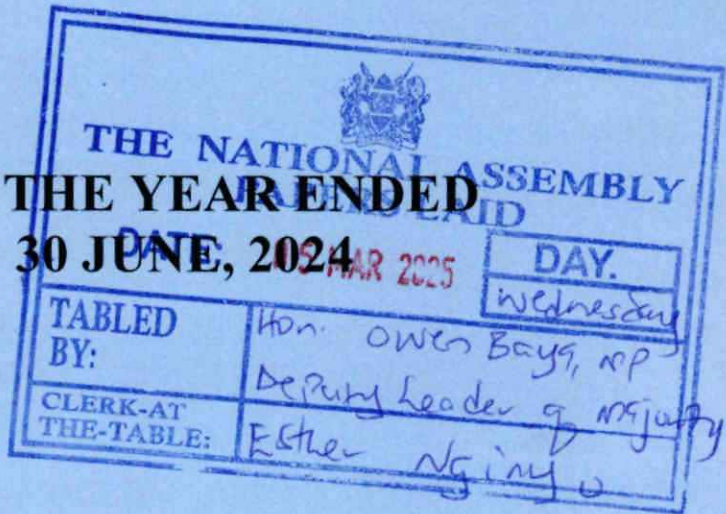 THE NATIONAL ASSEMBLY
PAPERS LAID
THE YEAR ENDED
30 JUNE, 2024
DATE: 05 MAR 2025
DAY.
Wednesday
TABLED BY:
Hon. Owen Baya, MP
Deputy Leader of Majority
CLERK-AT THE-TABLE:
Esther Nginyo